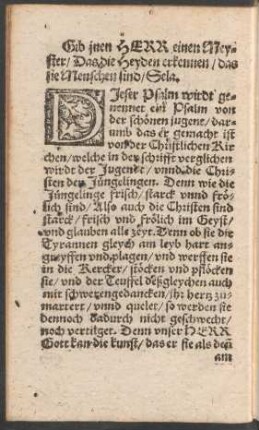 Gib jnen HERR einen Mey-
ster / Das die Heyden erkennen / das
sie Menschen sind / Sela.
DJeser Psalm wirdt ge-
nennet ein Psalm von
der schönen jugent / dar-
umb das er gemacht ist
von der Christlichen Kir
chen / welche in der schrifft verglichen
wirdt der Jugent / vnnd die Chri-
sten den Jüngelingen. Denn wie die
Jüngelinge frisch / starck vnnd frö-
lich sind / Also auch die Christen sind
starck / frisch vnd frölich im Geyst /
vnd glauben alle zeyt. Denn ob sie die
Tyrannen gleych am leyb hart an-
greyffen vnd plagen / vnd werffen sie
in die Kercker / stöcken vnd pflöcken
sie / vnd der Teuffel deßgleychen auch
mit schweren gedancken / jhr hertz zu-
martert / vnnd quelet / so werden sie
dennoch dadurch nicht geschwecht /
noch vertilget. Denn vnser HERR
Gott kan die kunst / das er sie als deñ
am